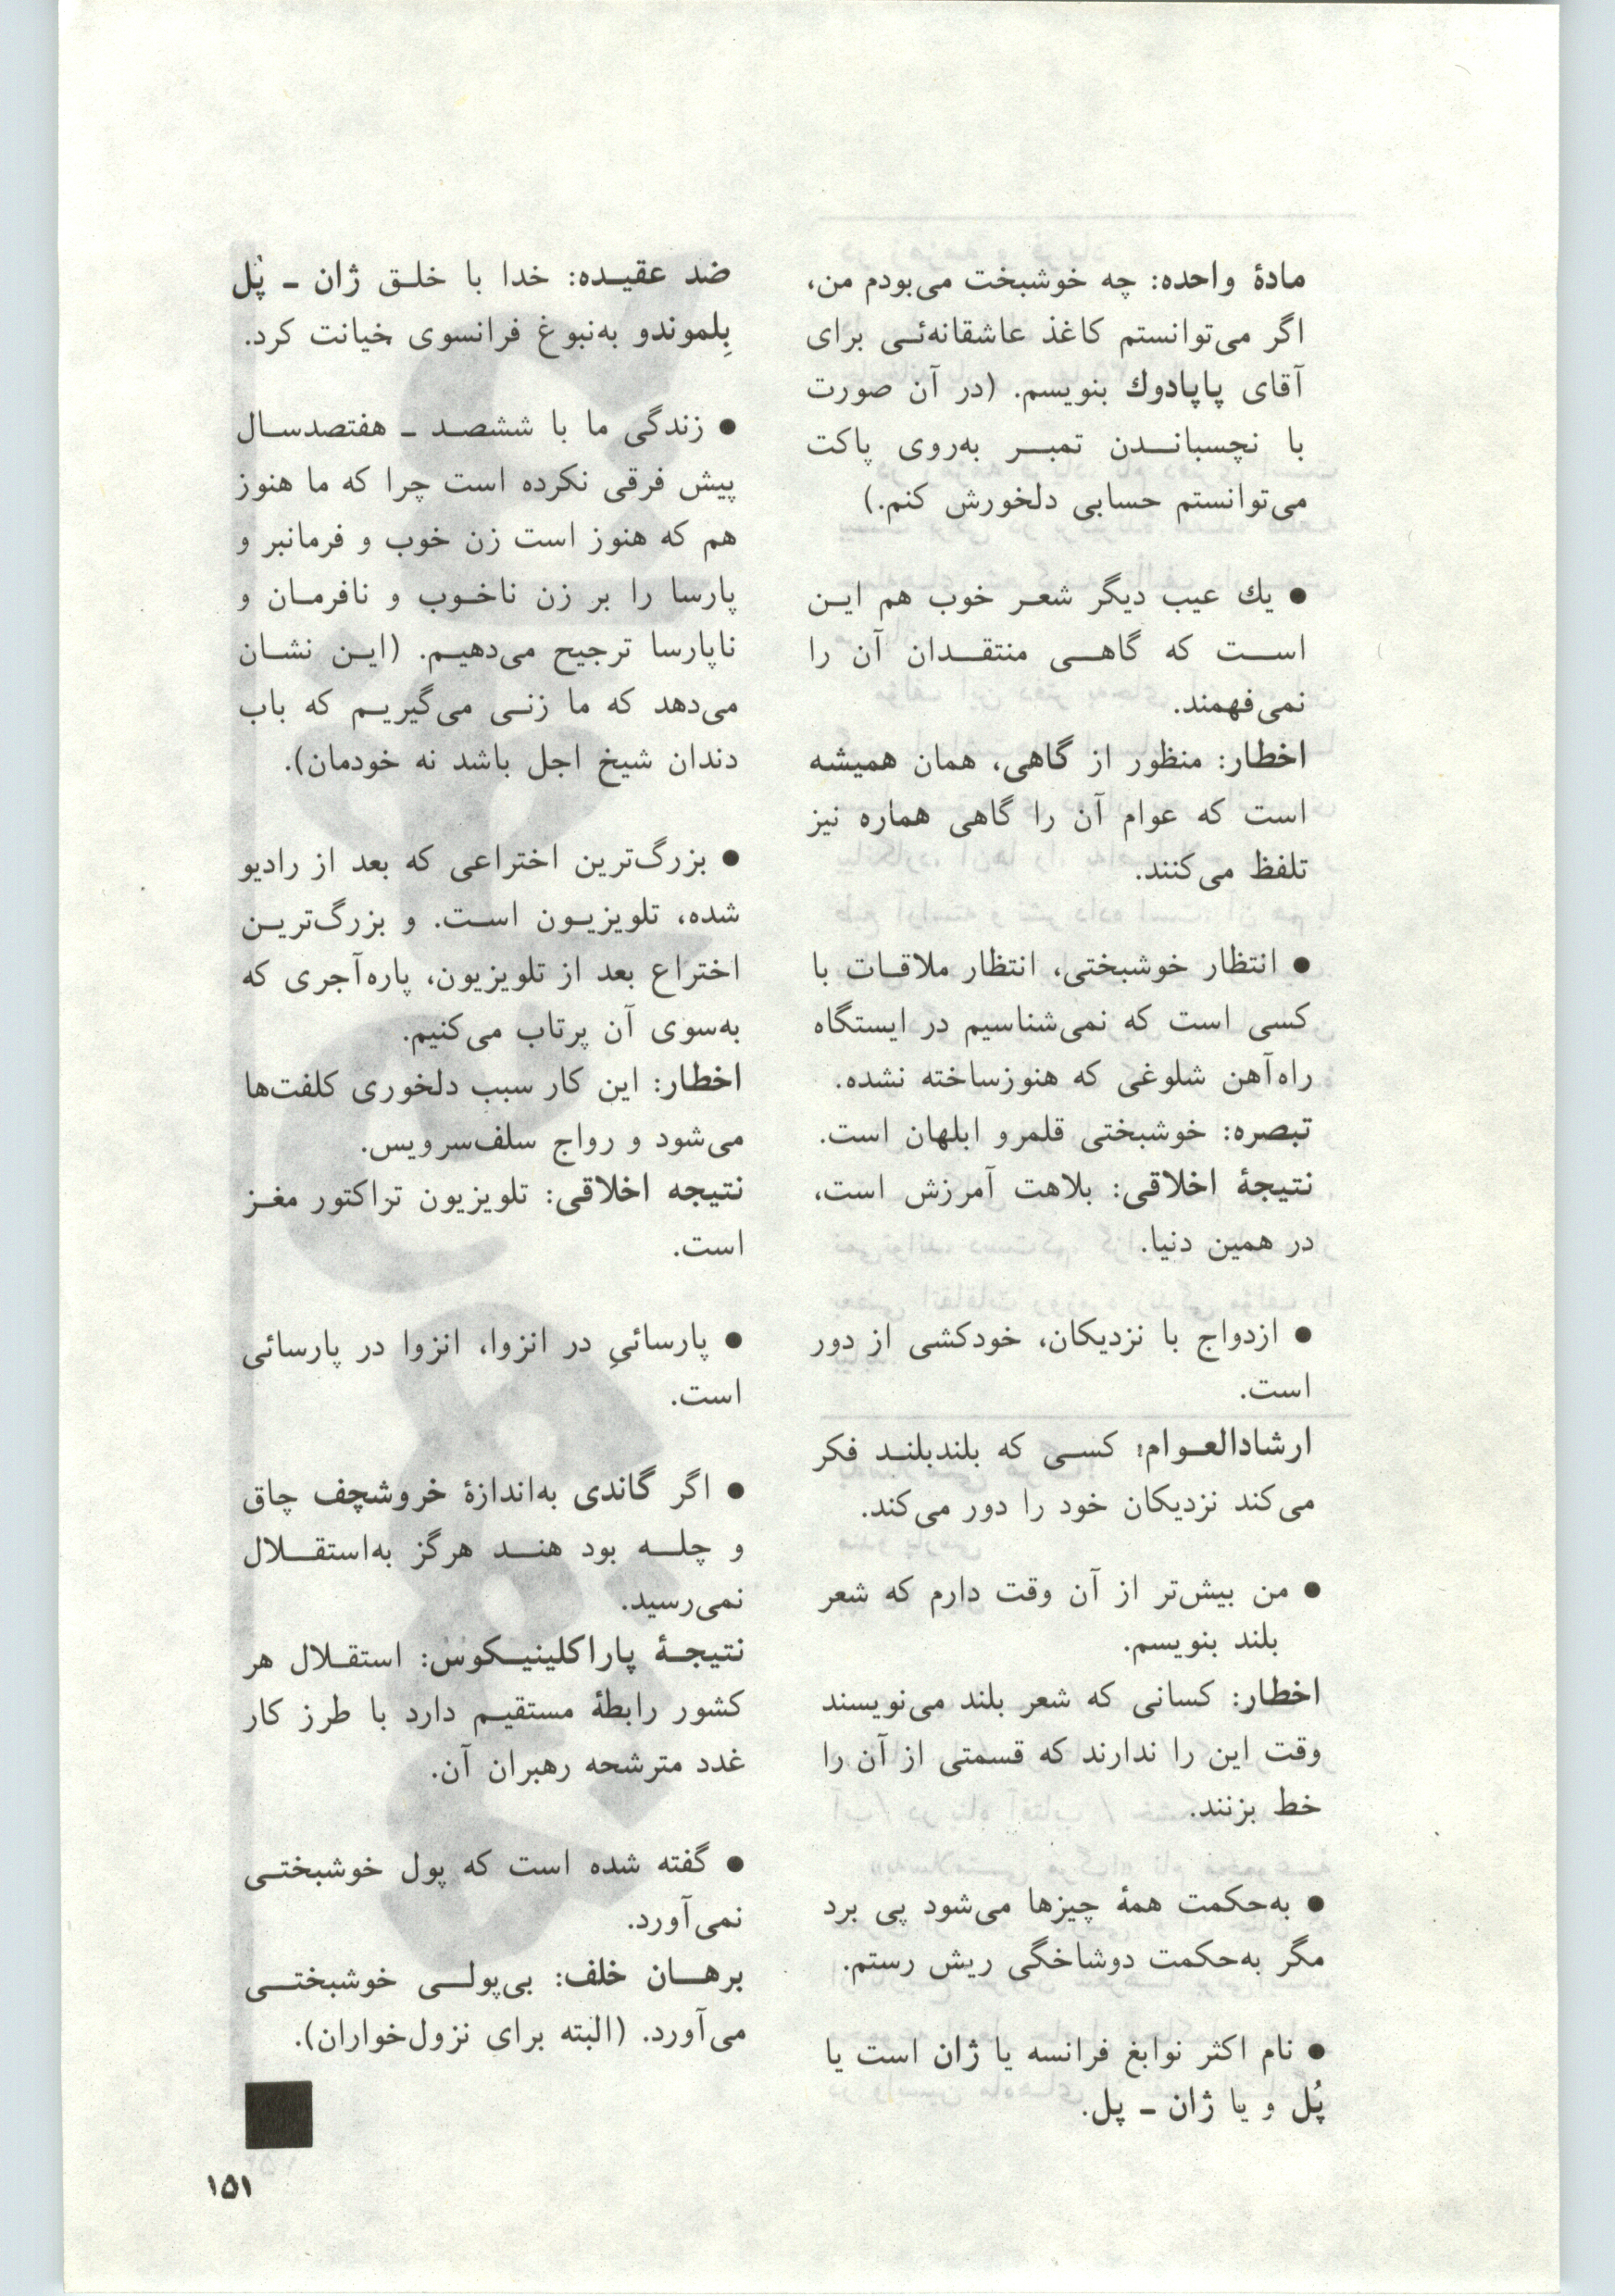 مادهٔ واحده: چه خوشبخت می‌بودم من،
اگر می‌توانستم کاغذ عاشقانه‌ئی برای
آقای پاپادوك بنویسم. (در آن صورت
با نچسباندن تمبر به‌روی پاکت
می‌توانستم حسابی دلخورش کنم.)
● یك عیب دیگر شعر خوب هم این
است که گاهی منتقدان آن را
نمی‌فهمند.
اخطار: منظور از گاهی، همان همیشه
است که عوام آن را گاهی هماره نیز
تلفظ می‌کنند.
● انتظار خوشبختی، انتظار ملاقات با
کسی است که نمی‌شناسیم در ایستگاه
راه‌آهن شلوغی که هنوزساخته نشده.
تبصره: خوشبختی قلمرو ابلهان است.
نتیجهٔ اخلاقی: بلاهت آمرزش است،
در همین دنیا.
● ازدواج با نزدیکان، خودکشی از دور
است.
ارشادالعوام: کسی که بلندبلند فکر
می‌کند نزدیکان خود را دور می‌کند.
● من بیش‌تر از آن وقت دارم که شعر
بلند بنویسم.
اخطار: کسانی که شعر بلند می‌نویسند
وقت این را ندارند که قسمتی از آن را
خط بزنند.
● به‌حکمت همهٔ چیزها می‌شود پی برد
مگر به‌حکمت دوشاخگی ریش رستم.
● نام اکثر نوابغ فرانسه یا ژان است یا
پُل و یا ژان ـ پل.
ضد عقیده: خدا با خلق ژان ـ پُل
بِلموندو به‌نبوغ فرانسوی خیانت کرد.
● زندگی ما با ششصد ـ هفتصدسال
پیش فرقی نکرده است چرا که ما هنوز
هم که هنوز است زن خوب و فرمانبر و
پارسا را بر زن ناخوب و نافرمان و
ناپارسا ترجیح می‌دهیم. (این نشان
می‌دهد که ما زنی می‌گیریم که باب
دندان شیخ اجل باشد نه خودمان).
● بزرگ‌ترین اختراعی که بعد از رادیو
شده، تلویزیون است. و بزرگ‌ترین
اختراع بعد از تلویزیون، پاره‌آجری که
به‌سوی آن پرتاب می‌کنیم.
اخطار: این کار سبب دلخوری کلفت‌ها
می‌شود و رواج سلف‌سرویس.
نتیجه اخلاقی: تلویزیون تراکتور مغز
است.
● پارسائیِ در انزوا، انزوا در پارسائی
است.
● اگر گاندی به‌اندازهٔ خروشچف چاق
و چله بود هند هرگز به‌استقلال
نمی‌رسید.
نتیجهٔ پاراکلینیکوس: استقلال هر
کشور رابطهٔ مستقیم دارد با طرز کار
غدد مترشحه رهبران آن.
● گفته شده است که پول خوشبختی
نمی‌آورد.
برهان خلف: بی‌پولی خوشبختی
می‌آورد. (البته برای نزول‌خواران).
۱۵۱